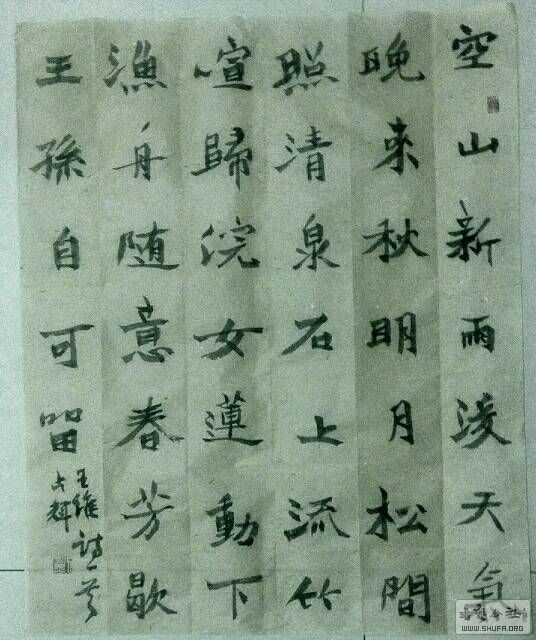 空山新雨後天氣
晚来秋明月松間
照清泉石上流竹
喧歸浣女蓮動下
漁舟随意春芳歇
王孫自可留
王維詩一首
輝
书艺公社
WWW.SHUFA.ORG